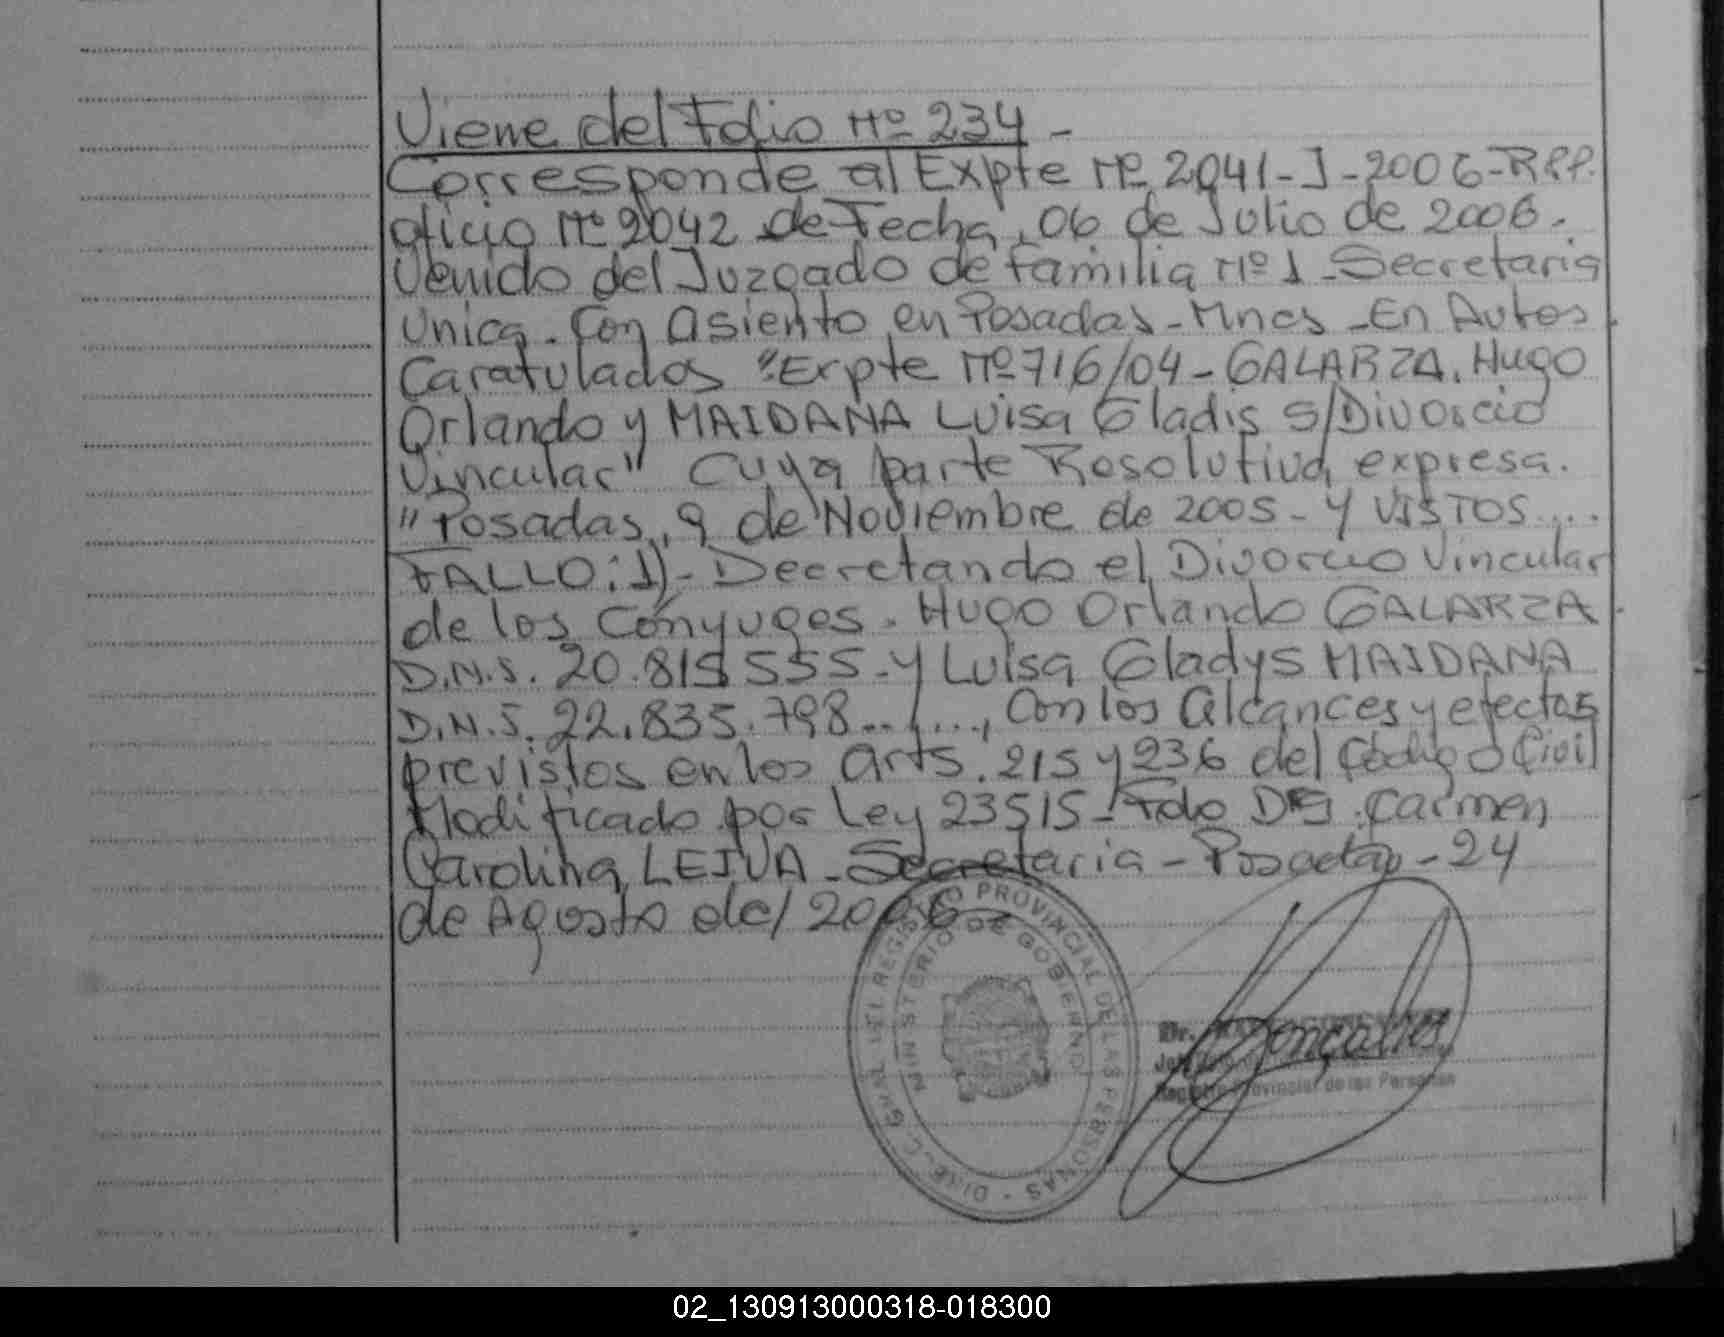 Viene del Folio Nº 234 -
Corresponde al Expte Nº 2041-J-2006-RPP.
oficio Nº 2042 de Fecha, 06 de Julio de 2006.
Venido del Juzgado de familia Nº 1 - Secretaria
Unica. Con asiento en Posadas - Mnes - En Autos
Caratulados "Expte Nº 716/04 - GALARZA, Hugo
Orlando y MAIDANA Luisa Gladis S/Divorcio
Vincular" Cuya parte Resolutiva expresa.
"Posadas, 9 de Noviembre de 2005 - Y VISTOS....
FALLO: 1) - Decretando el Divorcio Vincular
de los Cónyuges. Hugo Orlando GALARZA
D.N.I. 20.815 555 - y Luisa Gladys MAIDANA
D.N.I. 22.835.798../...., Con los alcances y efectos
previstos en los arts. 215 y 236 del Código Civil
Modificado por Ley 23515 - Fdo Carmen
Carolina LEIVA - Secretaria - Posadas - 24
de Agosto del 2006
REGISTRO PROVINCIAL DE LAS PERSONAS
MINISTERIO DE GOBIERNO
Dr. Gonçalves
Registro Provincial de las Personas
02_130913000318-018300